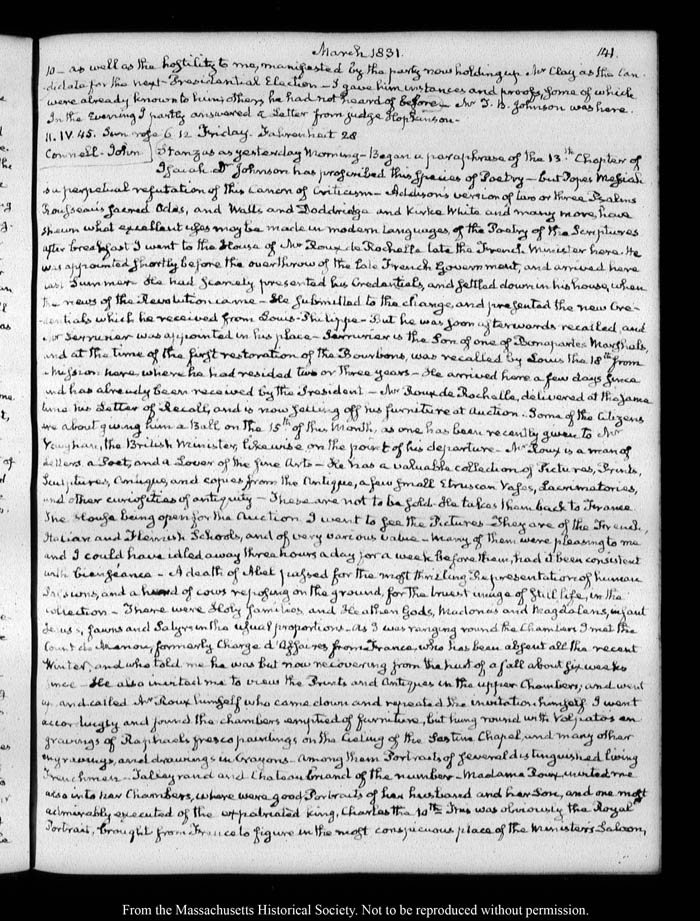 March 1831.
141.
10 — as well as the hostility to me, manifested by the party now holding up Mr Clay as the Can-
didate for the next Presidential Election — I gave him instances and proofs, some of which
were already known to him; others he had not heard of before — Mr T. B. Johnson was here.
In the Evening I partly answered a Letter from Judge Hopkinson —
11. IV. 45. Sun rose 6.12 Friday. Fahrenheit 28
Connell. John
Stanzas as yesterday Morning — Began a paraphrase of the 13th Chapter of
Isaiah Dr Johnson has proscribed this species of Poetry — but Popes Messiah
is a perpetual refutation of this Canon of Criticism — Addison's version of two or three Psalms
Rousseau's sacred Odes, and Watts and Doddridge and Kirke White and many more, have
shewn what excellent uses may be made in modern languages, of the Poetry of the Scriptures
After breakfast I went to the House of Mr Roux de Rochelle late the French Minister here. He
was appointed shortly before the overthrow of the late French Government, and arrived here
last Summer He had scarcely presented his Credentials, and settled down in his house, when
the news of the Revolution came — He submitted to the change, and presented the new Cre-
dentials which he received from Louis-Philippe — But he was soon afterwards recalled, and
Mr Serrurier was appointed in his place — Serrurier is the Son of one of Bonaparte's Marshals,
and at the time of the first restoration of the Bourbons, was recalled by Louis the 18th from
a mission here, where he had resided two or three years — He arrived here a few days since
and has already been received by the President — Mr Roux de Rochelle, delivered at the same
time his Letter of Recall, and is now selling off his furniture at Auction. Some of the Citizens
are about giving him a Ball on the 15th of this Month, as one has been recently given to Mr
Vaughan, the British Minister, likewise on the point of his departure — Mr Roux is a man of
Letters a Poet, and a Lover of the fine Arts — He has a valuable collection of Pictures, Prints,
Sculptures, Antique, and copies from the Antique, a few small Etruscan Vases, Lacrimatories,
and other curiosities of antiquity — These are not to be sold. He takes them back to France.
The House being open for the Auction I went to see the Pictures — They are of the French,
Italian and Flemish Schools, and of very various value — Many of them were pleasing to me
and I could have idled away three hours a day for a week before them, had it been consistent
with bienséance — A death of Abel passed for the most thrilling Representation of human
Passions, and a herd of cows reposing on the ground, for the truest image of Still life, in the
collection — There were Holy families, and Heathen Gods, Madonas and Magdalens, infant
Jesus's, fauns and Satyrs in the usual proportions. As I was ranging round the Chambers I met the
Count de Menou, formerly Chargé d'Affaires from France, who has been absent all the recent
Winter, and who told me he was but now recovering from the hurt of a fall about six weeks
since — He also invited me to view the Prints and Antiques in the upper Chambers; and went
up and called Mr Roux himself who came down and repeated the invitation himself I went
accordingly and found the chambers emptied of furniture, but hung round with Volpato's en-
gravings of Raphaels fresco paintings on the Cieling of the Sestine Chapel, and many other
engravings, and drawings in Crayons. Among them Portraits of several distinguished living
Frenchmen — Talleyrand and Chateaubriand of the number — Madame Roux invited me
also into her Chambers, where were good Portraits of her husband and her Son, and one most
admirably executed of the expatriated king, Charles the 10th This was obviously the Royal
Portrait, brought from France to figure in the most conspicuous place of the Minister's Saloon,
From the Massachusetts Historical Society. Not to be reproduced without permission.